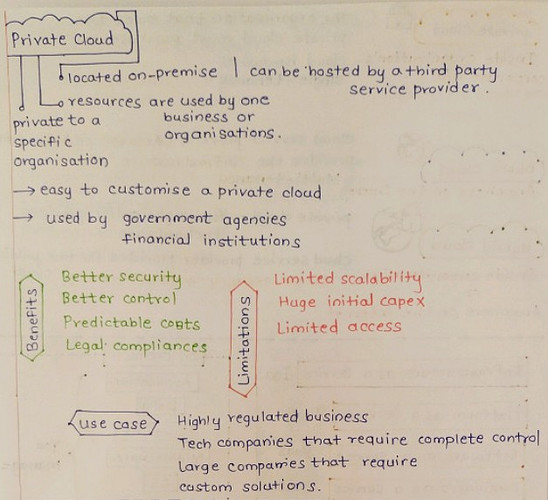 Private Cloud
located on-premise | can be hosted by a third party
service provider.
resources are used by one
business or
organisations.
private to a
specific
organisation
→ easy to customise a private cloud
→ used by government agencies
financial institutions
Benefits
Better security
Better control
Predictable costs
Legal compliances
Limitations
Limited scalability
Huge initial capex
Limited access
use case
Highly regulated business
Tech companies that require complete control
Large companies that require
custom solutions.